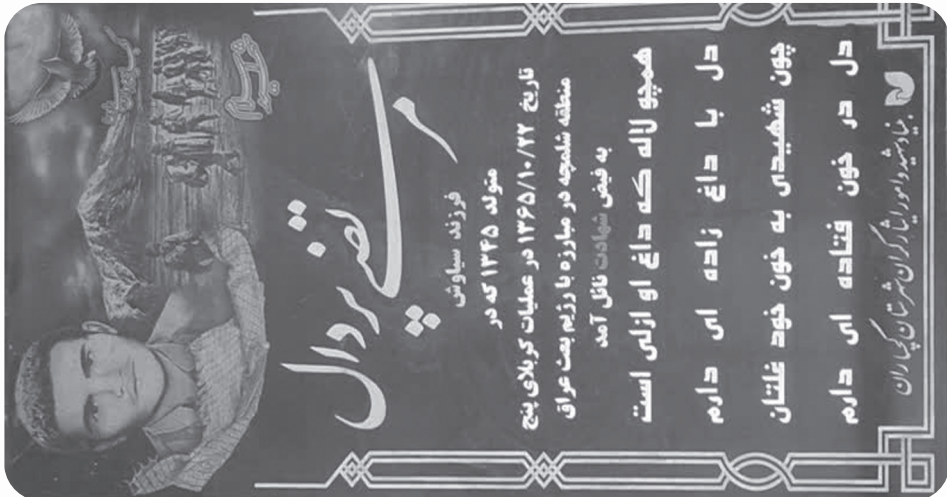 شهید
فرزند سیاوش
متولد ۱۳۴۵ که در
تاریخ ۱۳۶۵/۱۰/۲۲ در عملیات کربلای پنج
منطقه شلمچه در مبارزه با رژیم بعث عراق
به فیض شهادت نائل آمد
همچو لاله که داغ او ازلی است
دل با داغ زاده ای دارم
چون شهیدی به خون خود غلتان
دل در خون فتاده ای دارم
بنیاد شهید و امور ایثارگران شهرستان گچساران